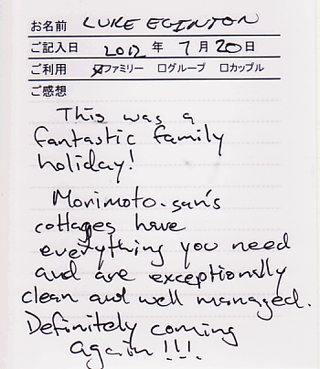 お名前 LUKE EGINTON
ご記入日 2012 年 7 月 20 日
ご利用 ☑ファミリー □グループ □カップル
ご感想
This was a
fantastic family
holiday!
Morimoto-san's
cottages have
everything you need
and are exceptionally
clean and well managed.
Definitely coming
again!!!